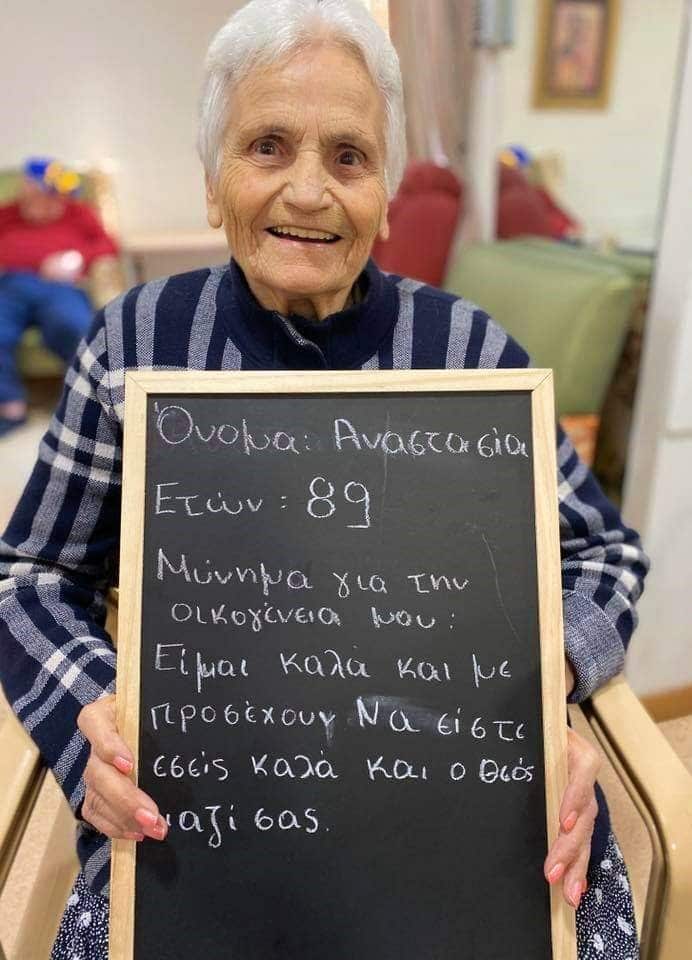 Όνομα: Αναστασία
Ετών: 89
Μύνημα για την
οικογένεια μου:
Είμαι καλά και με
προσέχουν Να είστε
εσείς καλά και ο Θεός
μαζί σας.